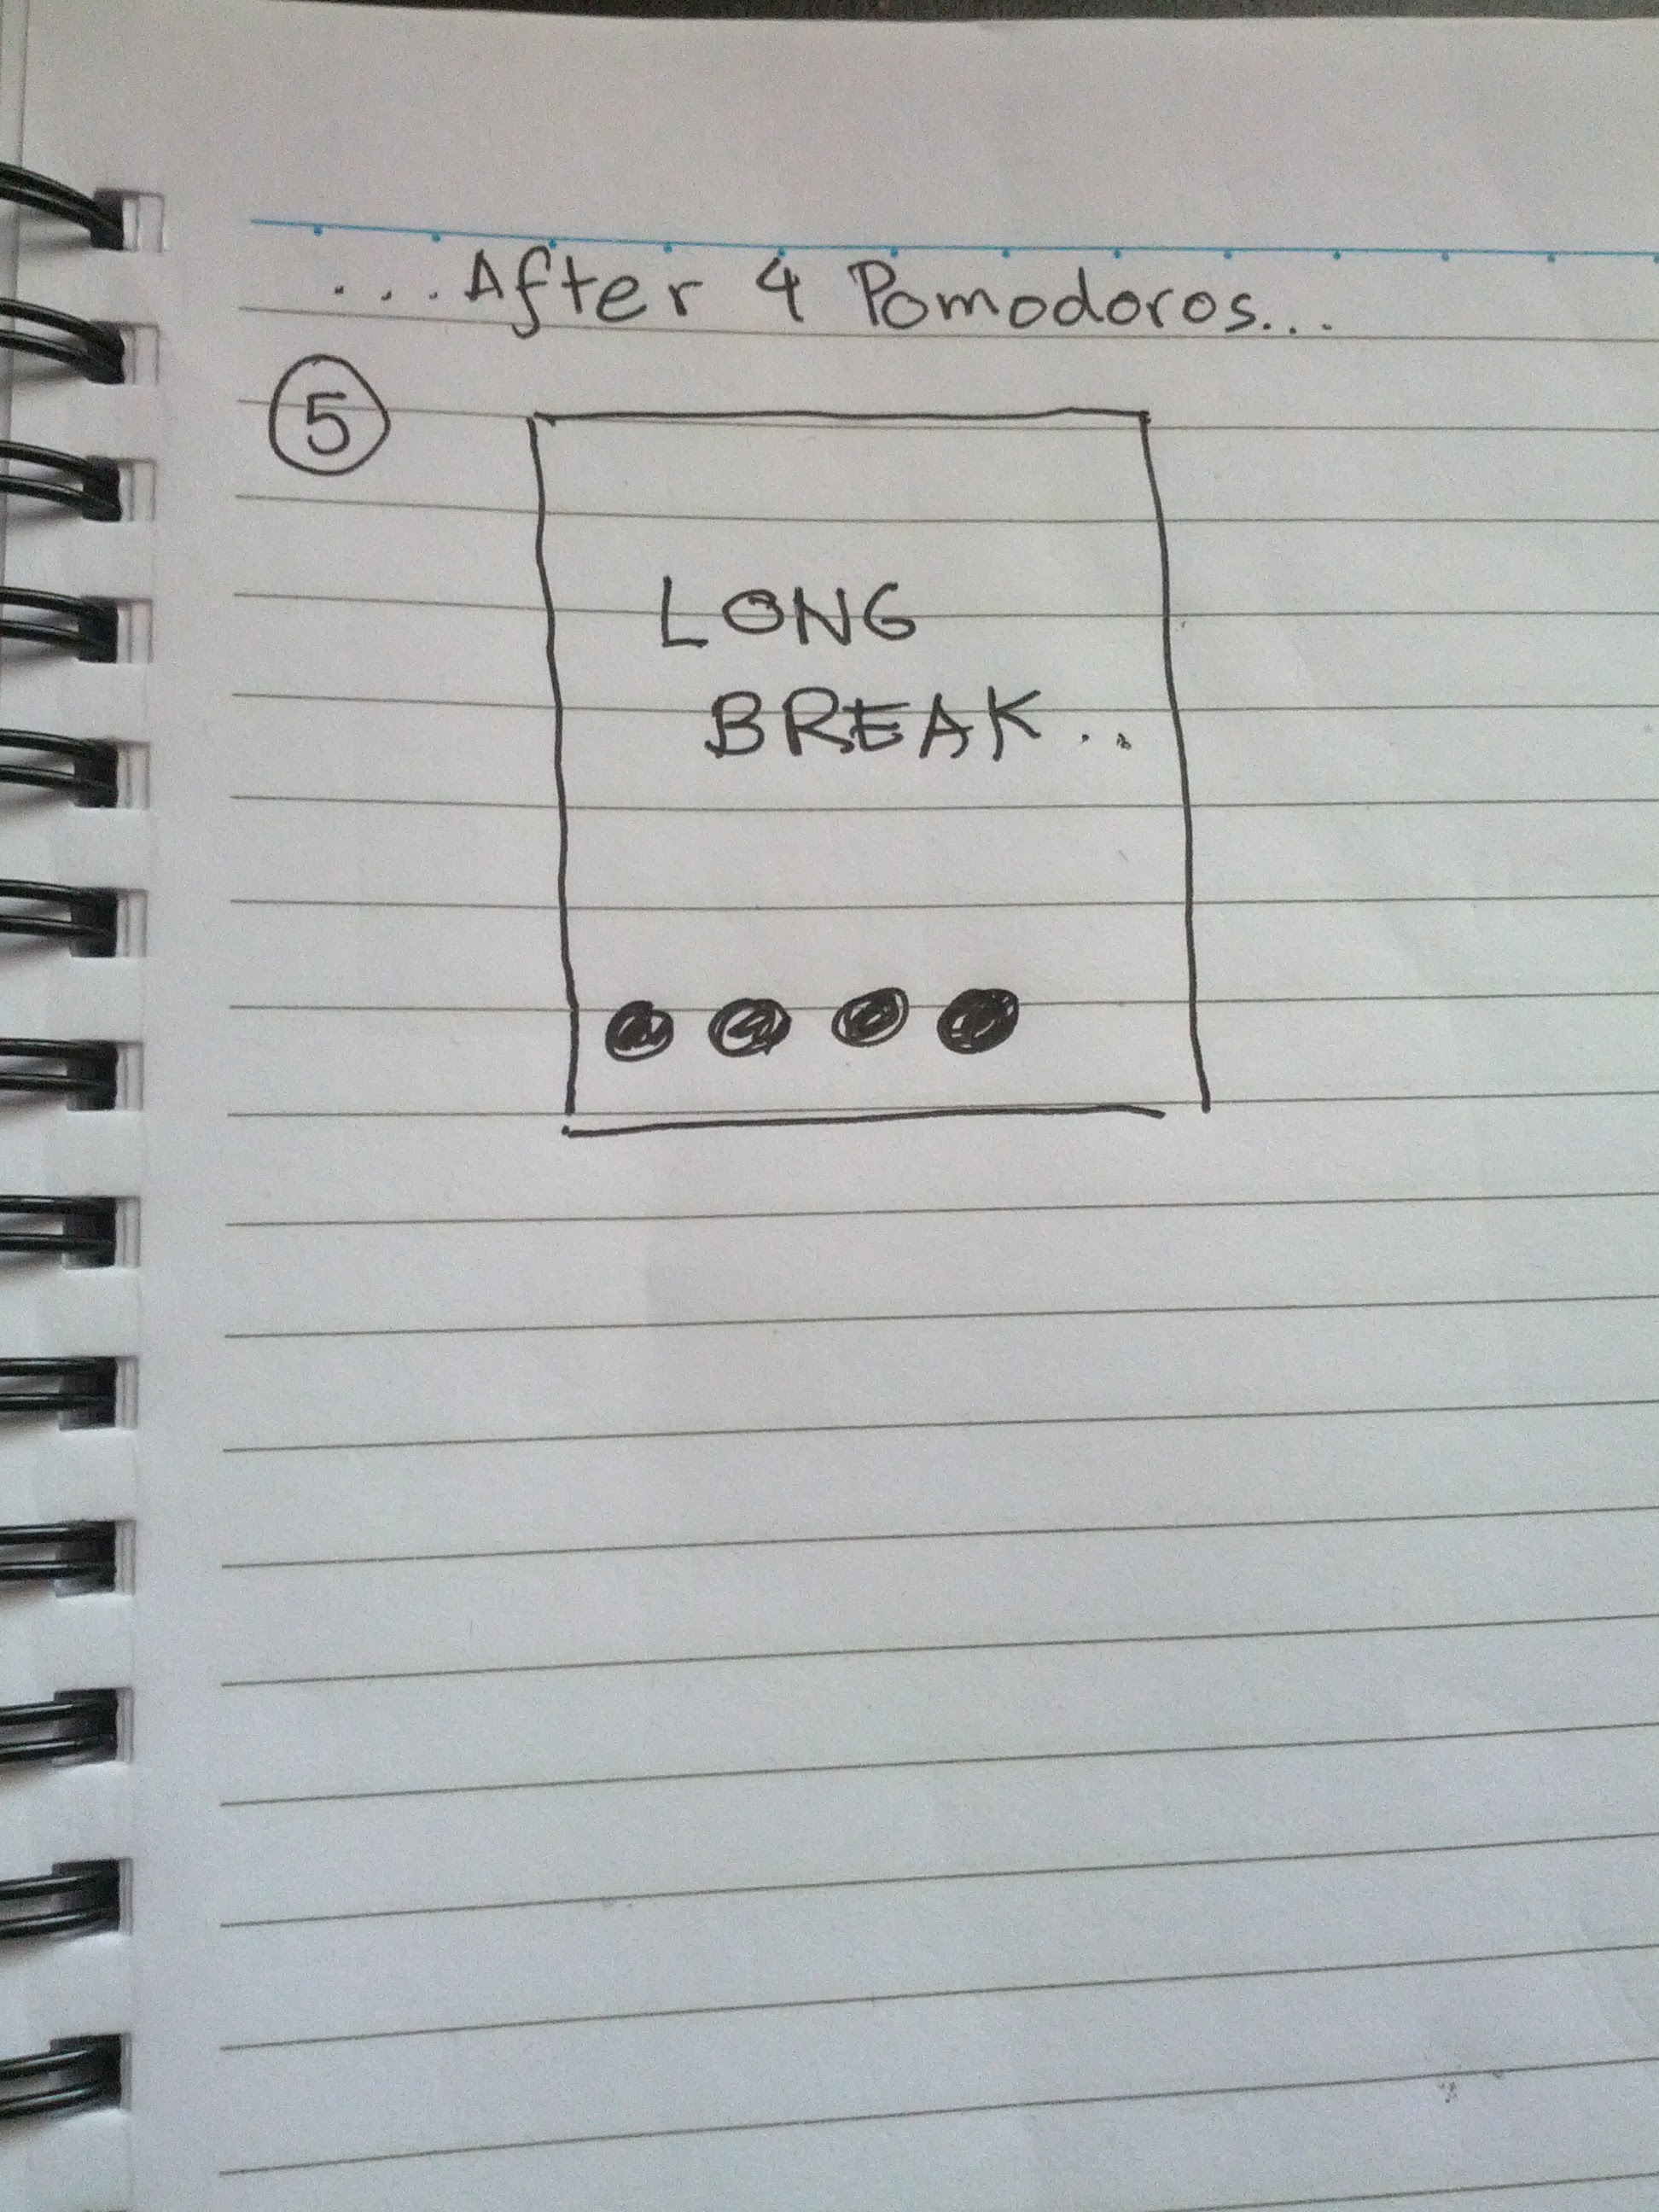 ...After 4 Pomodoros...
5
LONG
BREAK..